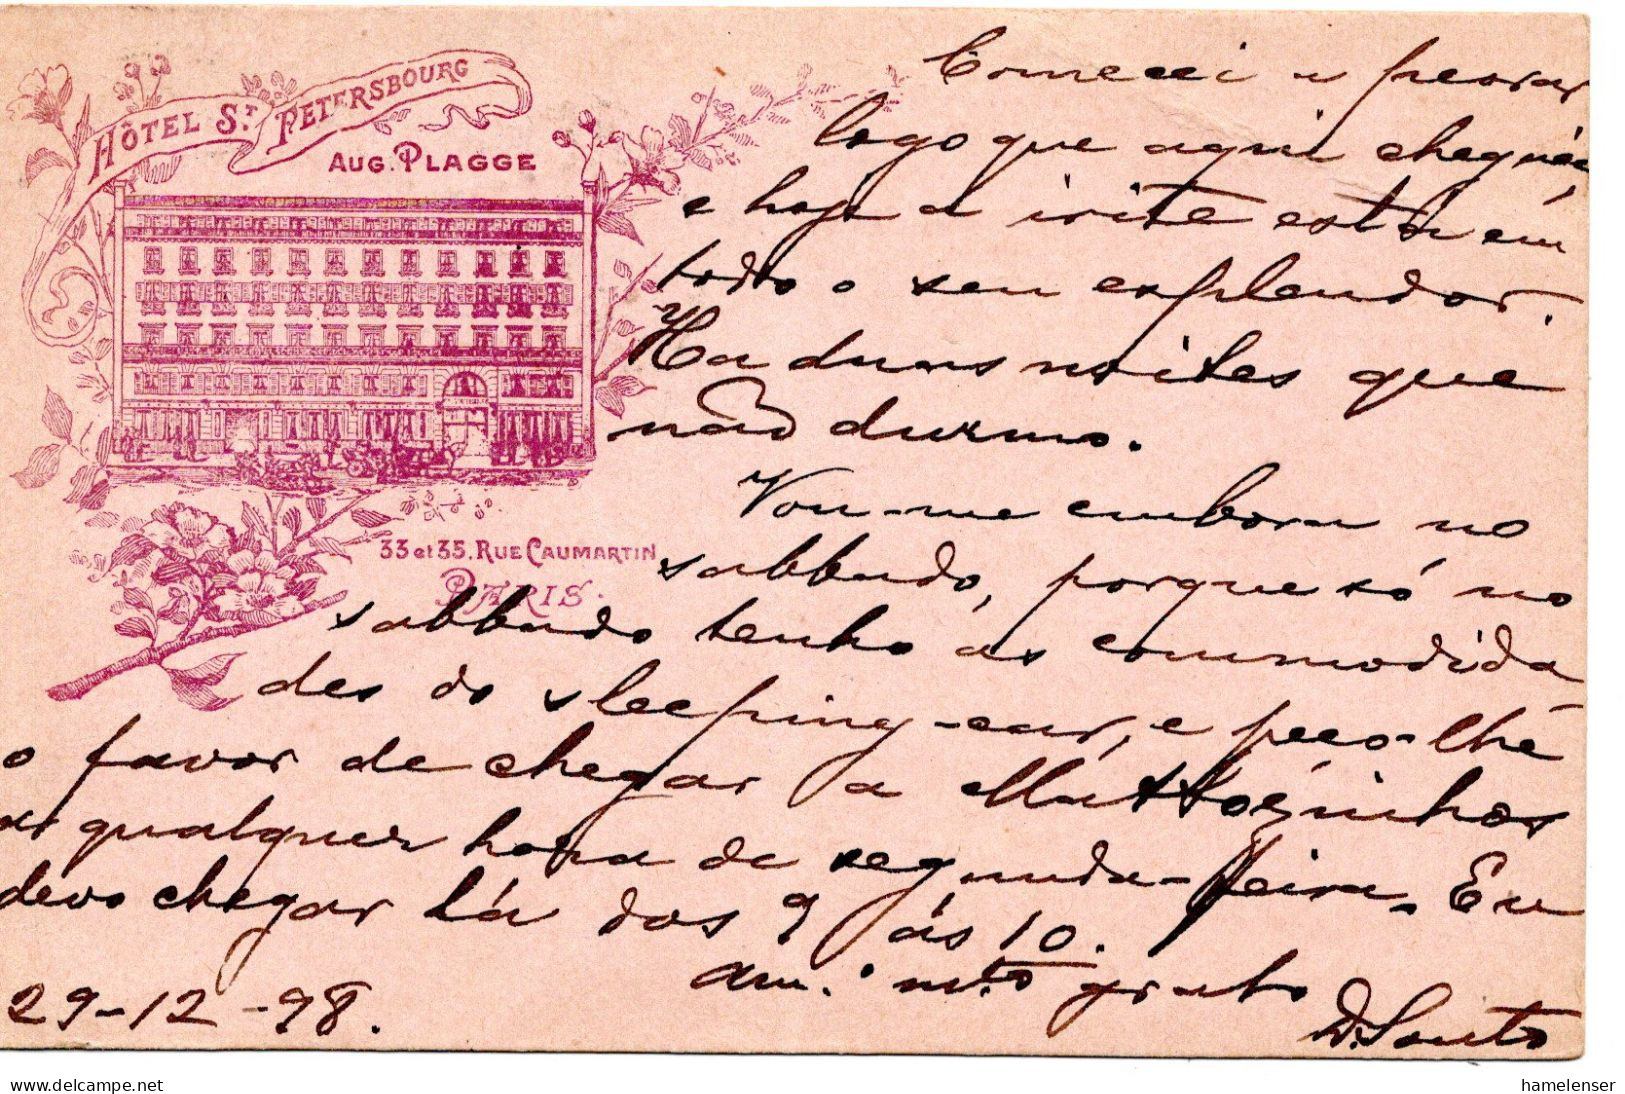 HÔTEL ST. PETERSBOURG
AUG. PLAGGE
33 et 35. RUE CAUMARTIN
PARIS.
Comecei a peorar
logo que aqui cheguei,
e hoje a irite está em
todo o seu esplendor.
Ha duas noites que
não durmo.
Vou-me embora no
sabbado, porque só no
sabbado tenho as commodida
des do sleeping-car, e peço-lhe
o favor de chegar a Mattosinhos
a qualquer hora de segunda-feira. Eu
devo chegar lá das 9 ás 10.
am.º m.to grato
D. Souto
29-12-98.
hamelenser